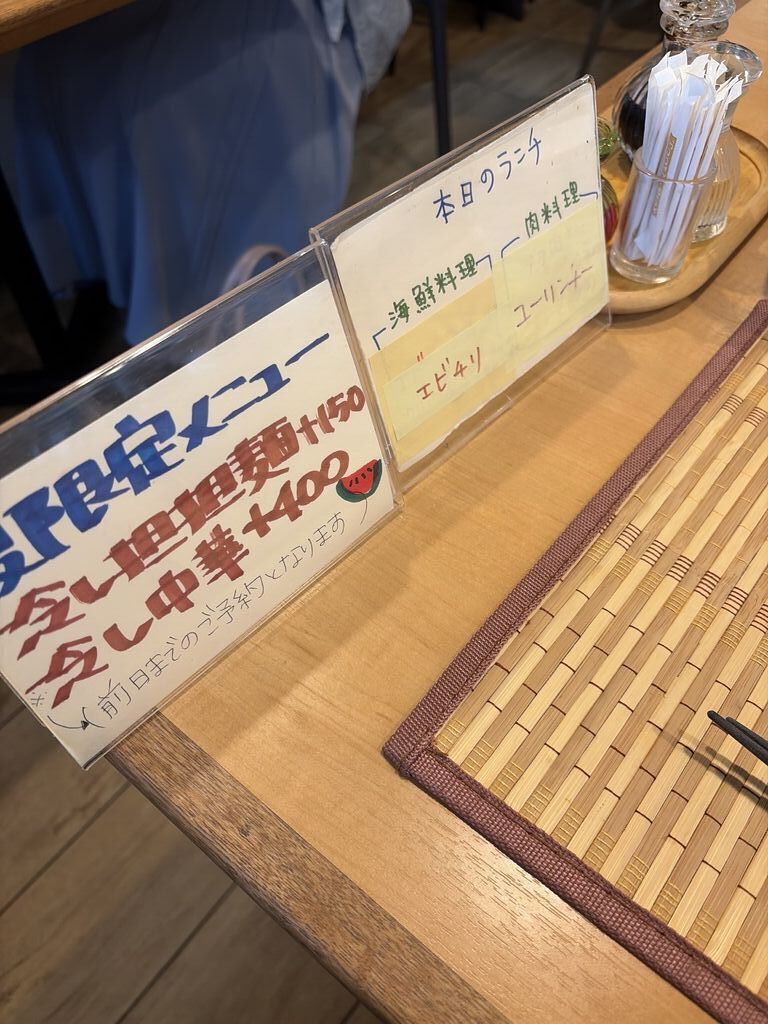 夏限定メニュー
冷し担担麺+150
冷し中華+400
※(前日までのご予約となります)
本日のランチ
「海鮮料理」
エビチリ
「肉料理」
ユーリンチー